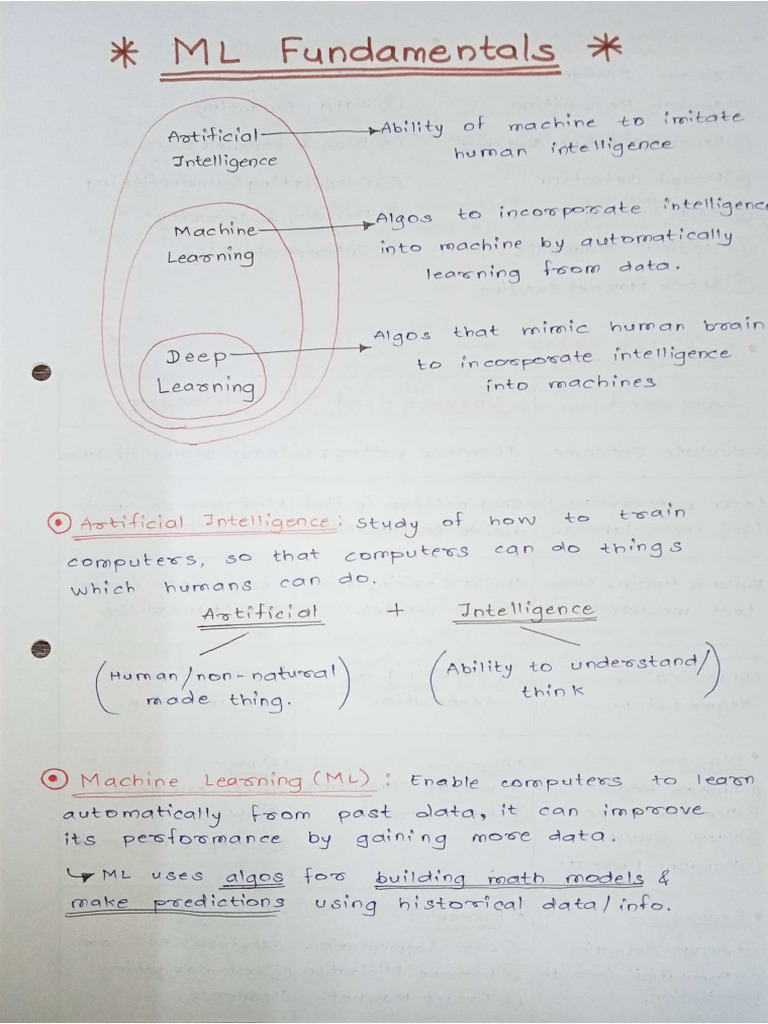 * ML Fundamentals *
Artificial
Intelligence
Ability of machine to imitate
human intelligence
Machine
Learning
Algos to incorporate intelligence
into machine by automatically
learning from data.
Deep
Learning
Algos that mimic human brain
to incorporate intelligence
into machines
Artificial Intelligence: Study of how to train
computers, so that computers can do things
which humans can do.
Artificial + Intelligence
(Human/non-natural
made thing.)
(Ability to understand/
think)
Machine Learning (ML): Enable computers to learn
automatically from past data, it can improve
its performance by gaining more data.
↳ ML uses algos for building math models &
make predictions using historical data/info.